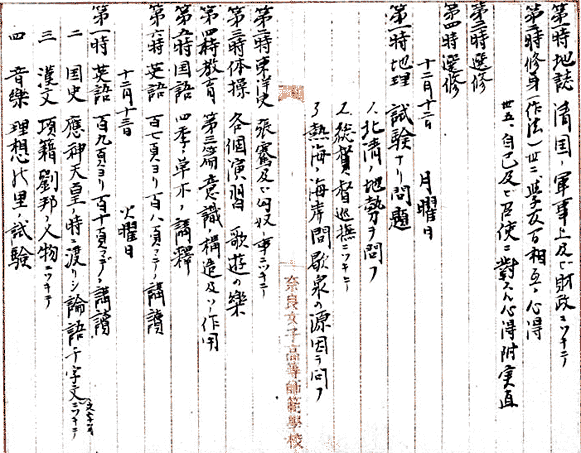 第一時 地誌 清国ノ軍事上及ビ財政ニツキテ
第二時 修身(作法)廿二 学友間相互ノ心得
廿五、自己及ビ召使ニ對スル心得 附 実直
第三時 選修
第四時 選修
十二月十二日 月曜日
第一時 地理 試験ナリ 問題
1、北清ノ地勢ヲ問フ
2、総督巡撫ニツキテ
3、熱海ノ海岸間歇泉の源因ヲ問フ
奈良女子高等師範學校
第二時 東洋史 張騫及ビ匈奴ノ事ニツキテ
第三時 体操 各個演習 歌遊の楽
第四時 教育 第三篇 意識ノ構造及ソノ作用
第五時 国語 四季ノ草木ノ講釋
第六時 英語 百七頁ヨリ百八頁マデノ講讀
十二月十三日 火曜日
第一時 英語 百九頁ヨリ百十頁マデノ講讀
二 国史 應神天皇ノ時ニ渡リシ論語千字文ニツキテ
三 漢文 項籍劉邦ノ人物ニツキテ
四 音樂 理想の里ノ試験